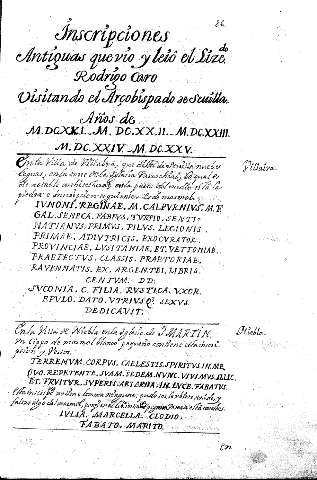 86.
Inscripciones
Antiguas que vio y leió el Lizdo.
Rodrigo Caro
Visitando el Arçobispado de Seuilla.
Años de
M.DCXXI. M.DCXXII. M.DCXXIII.
M.DCXXIV. M.DCXXV.
En la Villa de Villalva, que dista de Seuilla nueve
Villalva.
leguas, en la torre de la Iglesia Parrochial,
de notable antiguedad, en la parte del
piedra
IVNONI. REGINAE. M. CALPVRNIVS. M. F.
GAL. SENECA. FABIVS. TVRPIO. SENTI-
NATIANVS. PRIMVS. PILVS. LEGIONIS
PRIMAE. ADIVTRICIS. PROCVRATOR.
PROVINCIAE. LVSITANIAE. ET. VETTONIAE.
PRAEFECTVS. CLASSIS. PRAETORIAE.
RAVENNATIS. EX. ARGENTEI. LIBRIS.
CENTVM. DD.
SVCONIA. C. FILIA. RVSTICA. VXOR.
EPVLO. DATO. VTRIVSQ. SEXVS.
DEDICAVIT.
En la Villa de Niebla en la Iglesia de S. MARTIN.
Niebla.
un cipo de marmol blanco pequeño contiene esta inscri-
pcion y
TERRENVM. CORPVS. CAELESTIS. SPIRITVS. IN. ME.
QVO. REPETENTE. SVAM. SEDEM. NVNC. VIVIMVS. ILLIC.
ET. FRVITVR. SVPERIS. AETERNA. IN. LVCE. FABATVS.
IVLIA. MARCELLA. CLODIO.
FABATO. MARITO.
En